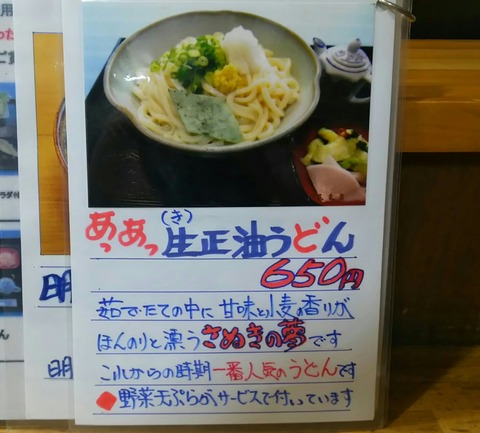 用
った
ラダ付
ん
明
明
(き)
あっあっ生正油うどん
650円
茹でたての中に甘味と小麦の香りが
ほんのりと漂うさぬきの夢です
これからの時期一番人気のうどんです
◆野菜天ぷらがサービスで付いています